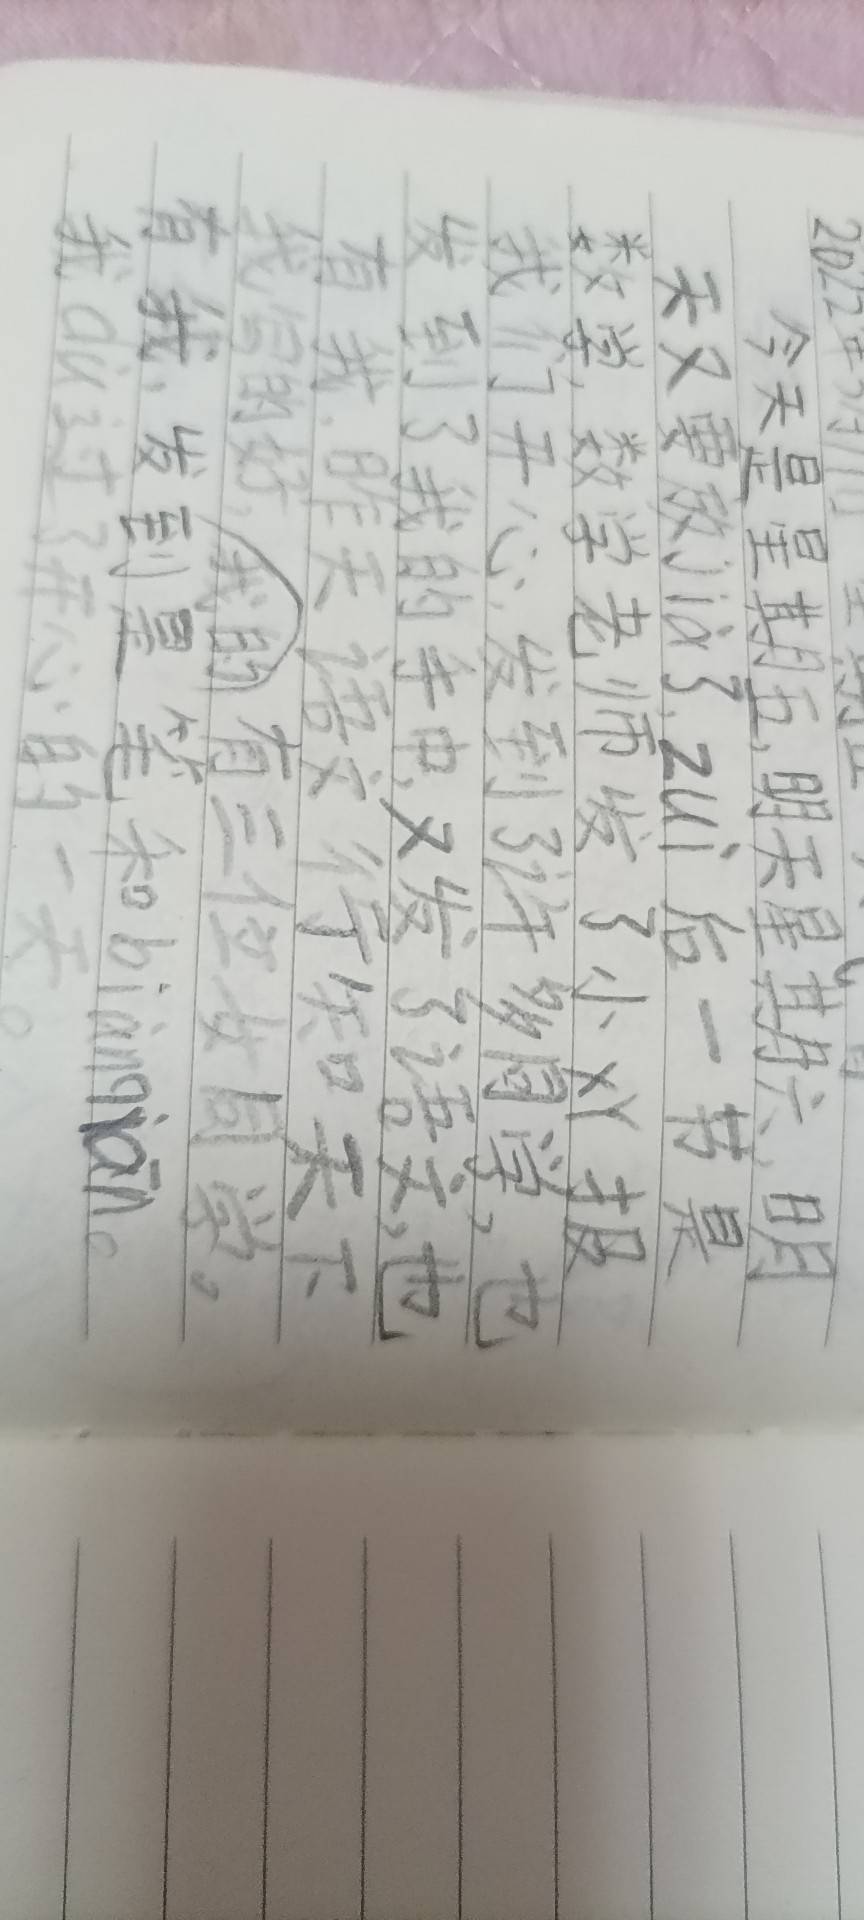 2022年 月 日 星期五
今天是星期五,明天星期六,明
天又要放jià了,zuì后一节是
数学,数学老师发了小xi报
我们开心,发到了许多同学,也
发到了我的手中,又发了语文,也
有我,昨天语文行 和天下
我写的好,我的有三位女同学,
有我,发到是笔和biāngiān。
我dù过了开心的一天。